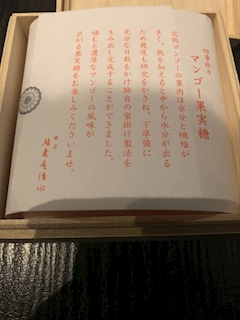 マンゴー果実糖
完熟マンゴーの果肉は水分と繊維が
多く、熱を加えると中から水分が出る
ため幾度も研究をかさね、下準備に
充分な日数をかけ独自の蜜掛け製法を
生み出し完成することができました。
噛むと濃厚なマンゴーの風味が
広がる果実糖をお楽しみくださいませ。